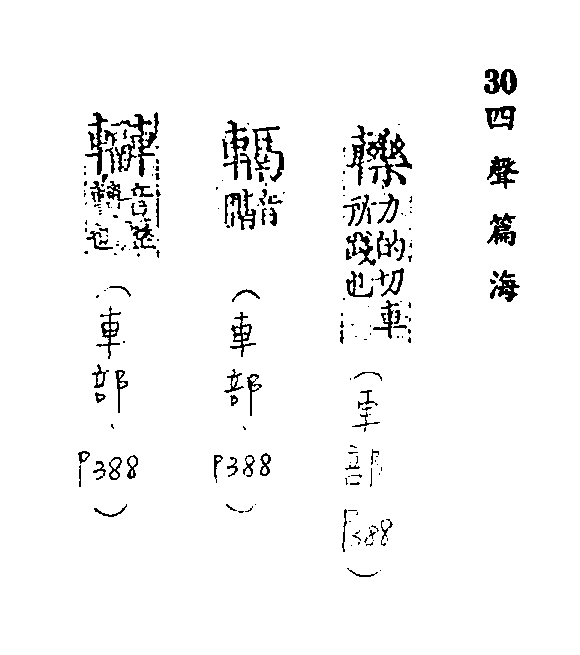 30四聲篇海
轢力的切車所踐也
(車部 P388)
音
(車部、P388)
音
也
(車部、P388)